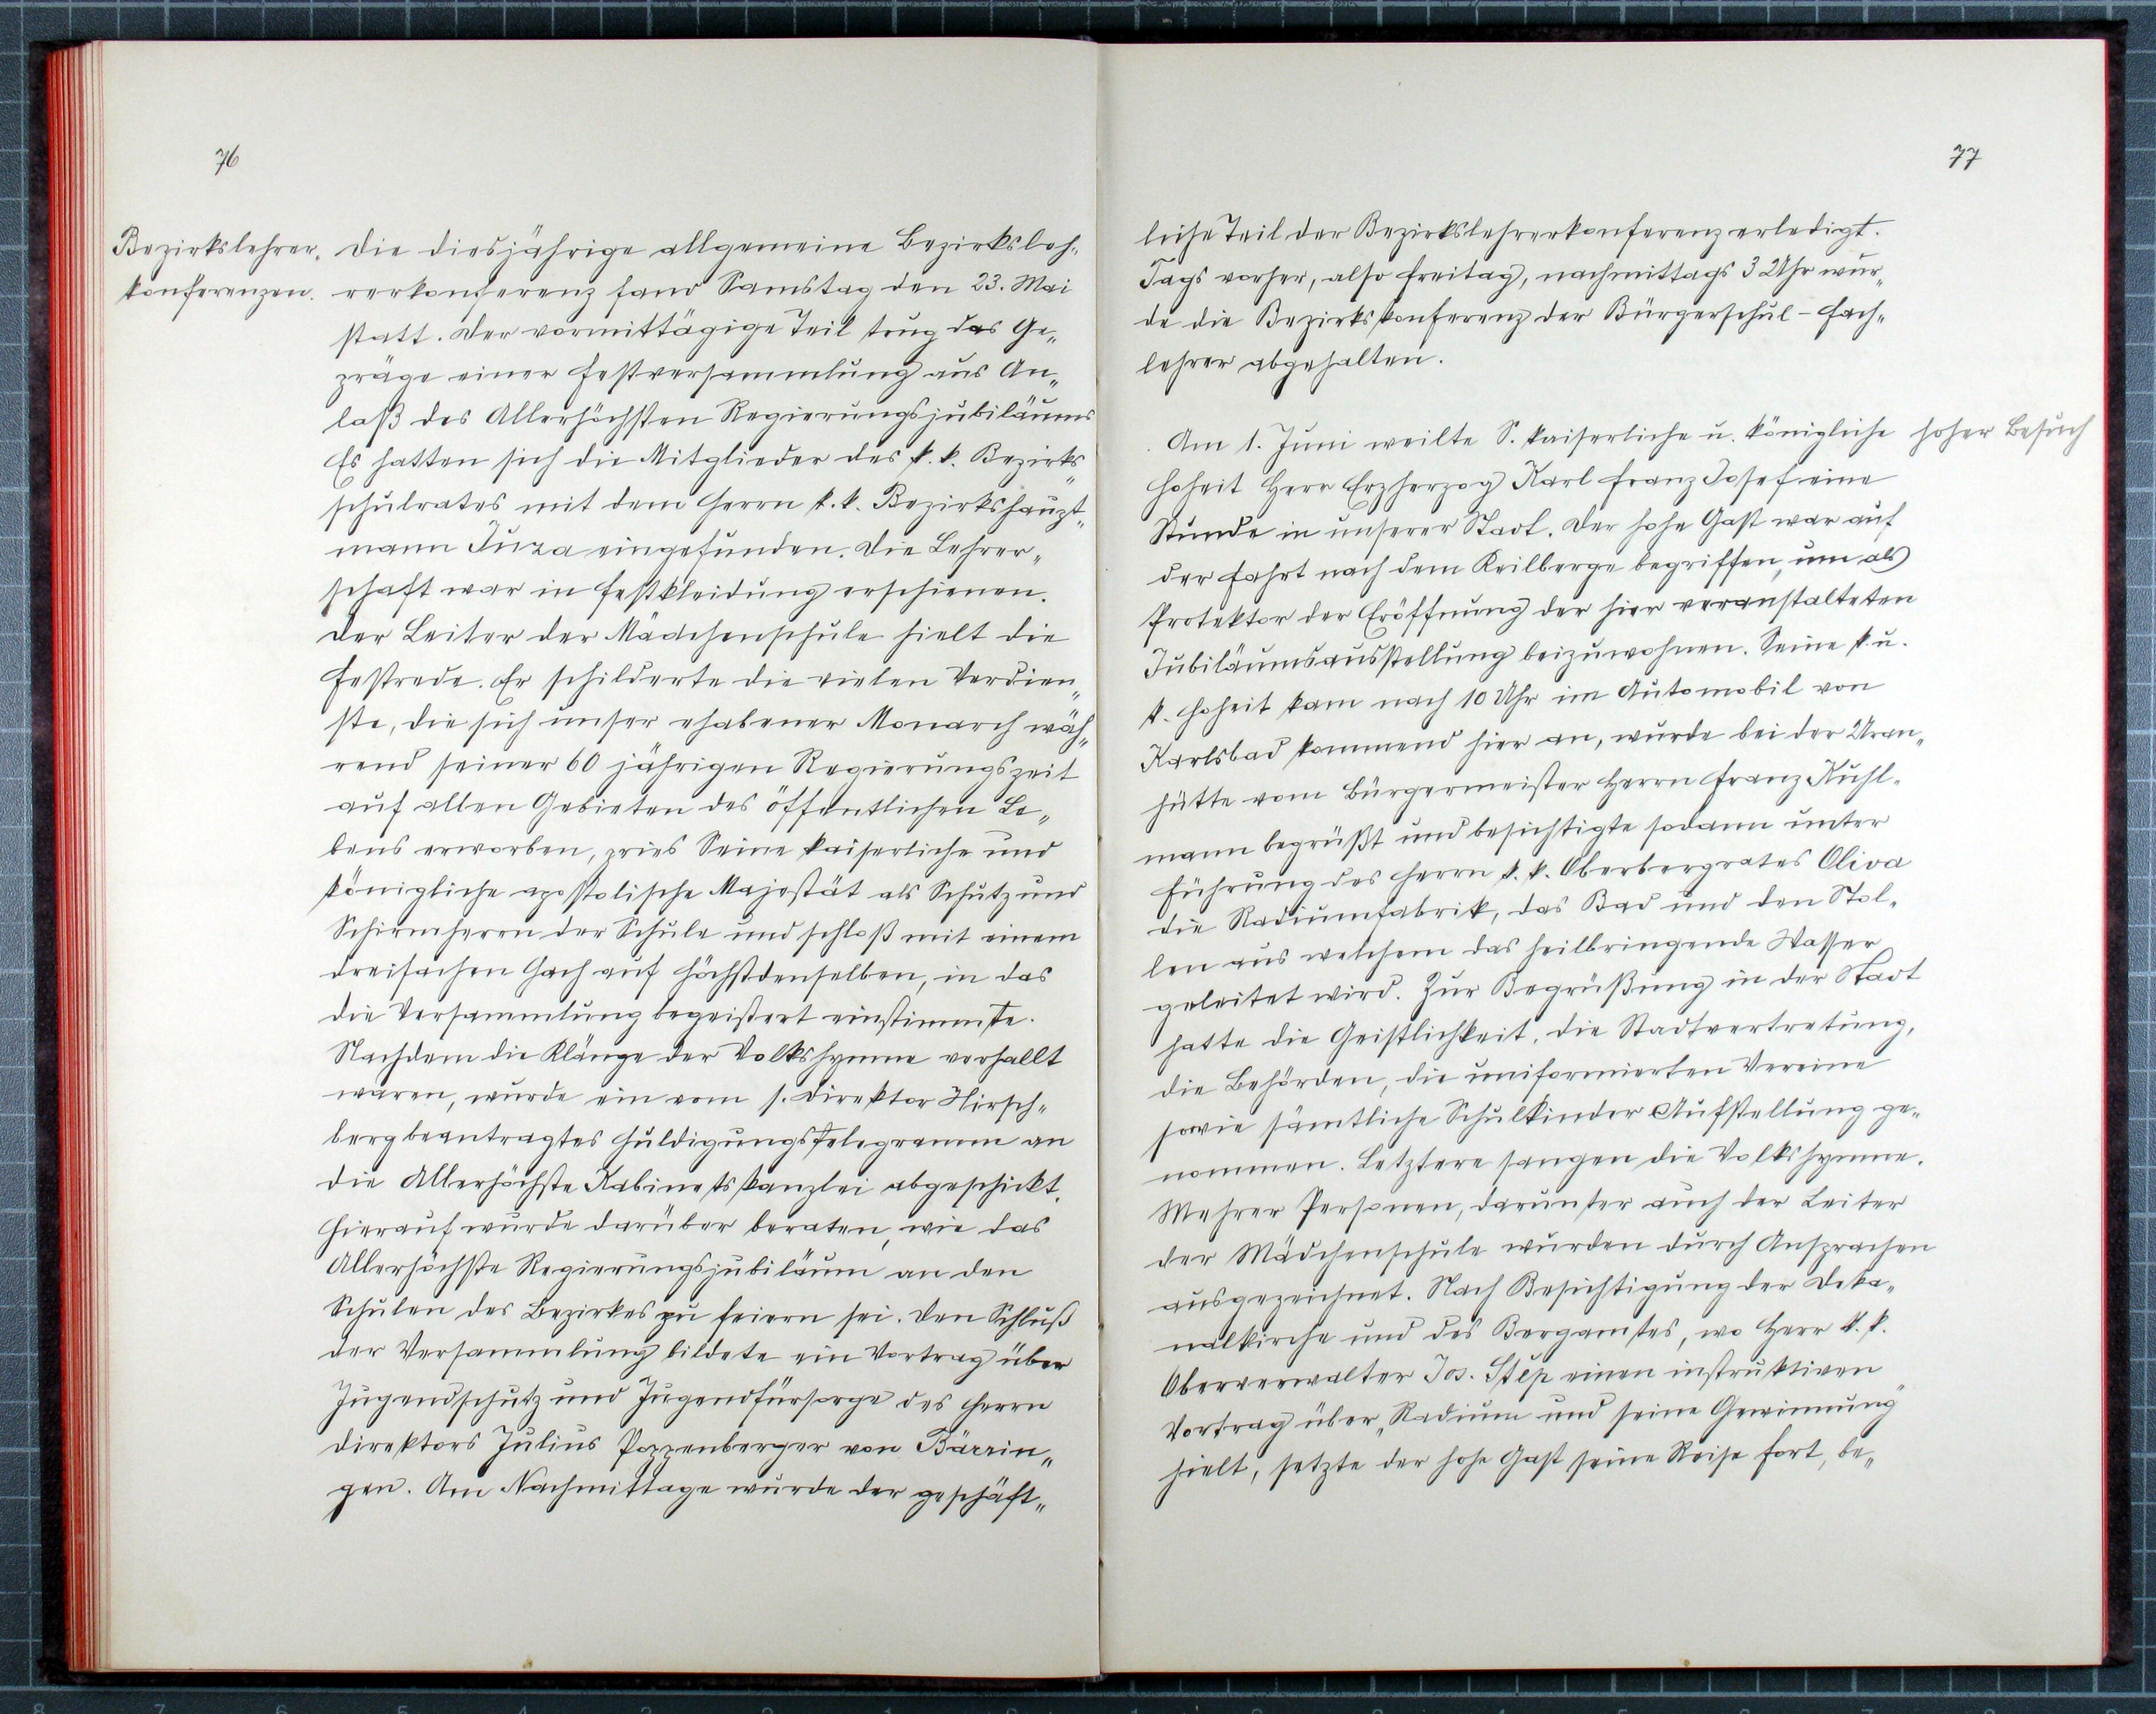 76
Bezirkslehrer-
konferenzen.
Die diesjährige allgemeine Bezirksleh-
rerkonferenz fand Samstag den 23. Mai
statt. Der vormittägige Teil trug das Ge-
präge einer Festversammlung aus An-
laß des Allerhöchsten Regierungsjubiläums
Es hatten sich die Mitglieder des k. k. Bezirks-
schulrates mit dem Herrn k. k. Bezirkshaupt-
mann Juza eingefunden. Die Lehrer-
schaft war in Festkleidung erschienen.
Der Leiter der Mädchenschule hielt die
Festrede. Er schilderte die vielen Verdien-
ste, die sich unser ehabener Monarch wäh-
rend seiner 60 jährigen Regierungszeit
auf allen Gebieten des öffentlichen Le-
bens erworben, pries Seine kaiserliche und
königliche apostolische Majestät als Schutz und
Schirmherrn der Schule und schloß mit einem
dreifachen Hoch auf Höchstdenselben, in das
die Versammlung begeistert einstimmte.
Nachdem die Klänge der Volkshymne verhallt
waren, wurde ein vom H. Direktor Hirsch-
berg beantragtes Huldigungstelegramm an
die Allerhöchste Kabinetskanzlei abgeschickt.
Hierauf wurde darüber beraten, wie das
Allerhöchste Regierungsjubiläum an den
Schulen des Bezirkes zu feiern sei. Den Schluß
der Versammlung bildete ein Vortrag über
Jugendschutz und Jugendfürsorge des Herrn
Direktors Julius Poppenberger von Bärrin-
gen. Am Nachmittage wurde der geschäft-
77
liche Teil der Bezirkslehrerkonferenz erledigt.
Tags vorher, also Freitag, nachmittags 3 Uhr wur-
de die Bezirkskonferenz der Bürgerschul-Fach-
lehrer abgehalten.
Am 1. Juni weilte S. kaiserliche u. königliche
Hoher Besuch
Hoheit Herr Erzherzog Karl Franz Josef eine
Stunde in unserer Stadt. Der hohe Gast war auf
der Fahrt nach dem Keilberge begriffen, um als
Protektor der Eröffnung der hier veranstalteten
Jubiläumsausstellung beizuwohnen. Seine k. u.
k. Hoheit kam nach 10 Uhr im Automobil von
Karlsbad kommend hier an, wurde bei der Uran-
hütte vom Bürgermeister Herrn Franz Kuhl-
mann begrüßt und besichtigte sodann unter
Führung des Herrn k. k. Oberbergrates Oliva
die Radiumfabrik, das Bad und den Stol-
len aus welchem das heilbringende Wasser
geleitet wird. Zur Begrüßung in der Stadt
hatte die Geistlichkeit, die Stadtvertretung,
die Behörden, die uniformierten Vereine
sowie sämtliche Schulkinder Aufstellung ge-
nommen. Letztere sangen die Volkshymne.
Mehrer Personen, darunter auch der Leiter
der Mädchenschule wurden durch Ansprachen
ausgezeichnet. Nach Besichtigung der Deka-
nalkirche und des Bergamtes, wo Herr k. k.
Oberverwalter Jos. Štěp einen instruktiven
Vortrag über „Radium und seine Gewinnung"
hielt, setzte der hohe Gast seine Reise fort, be-